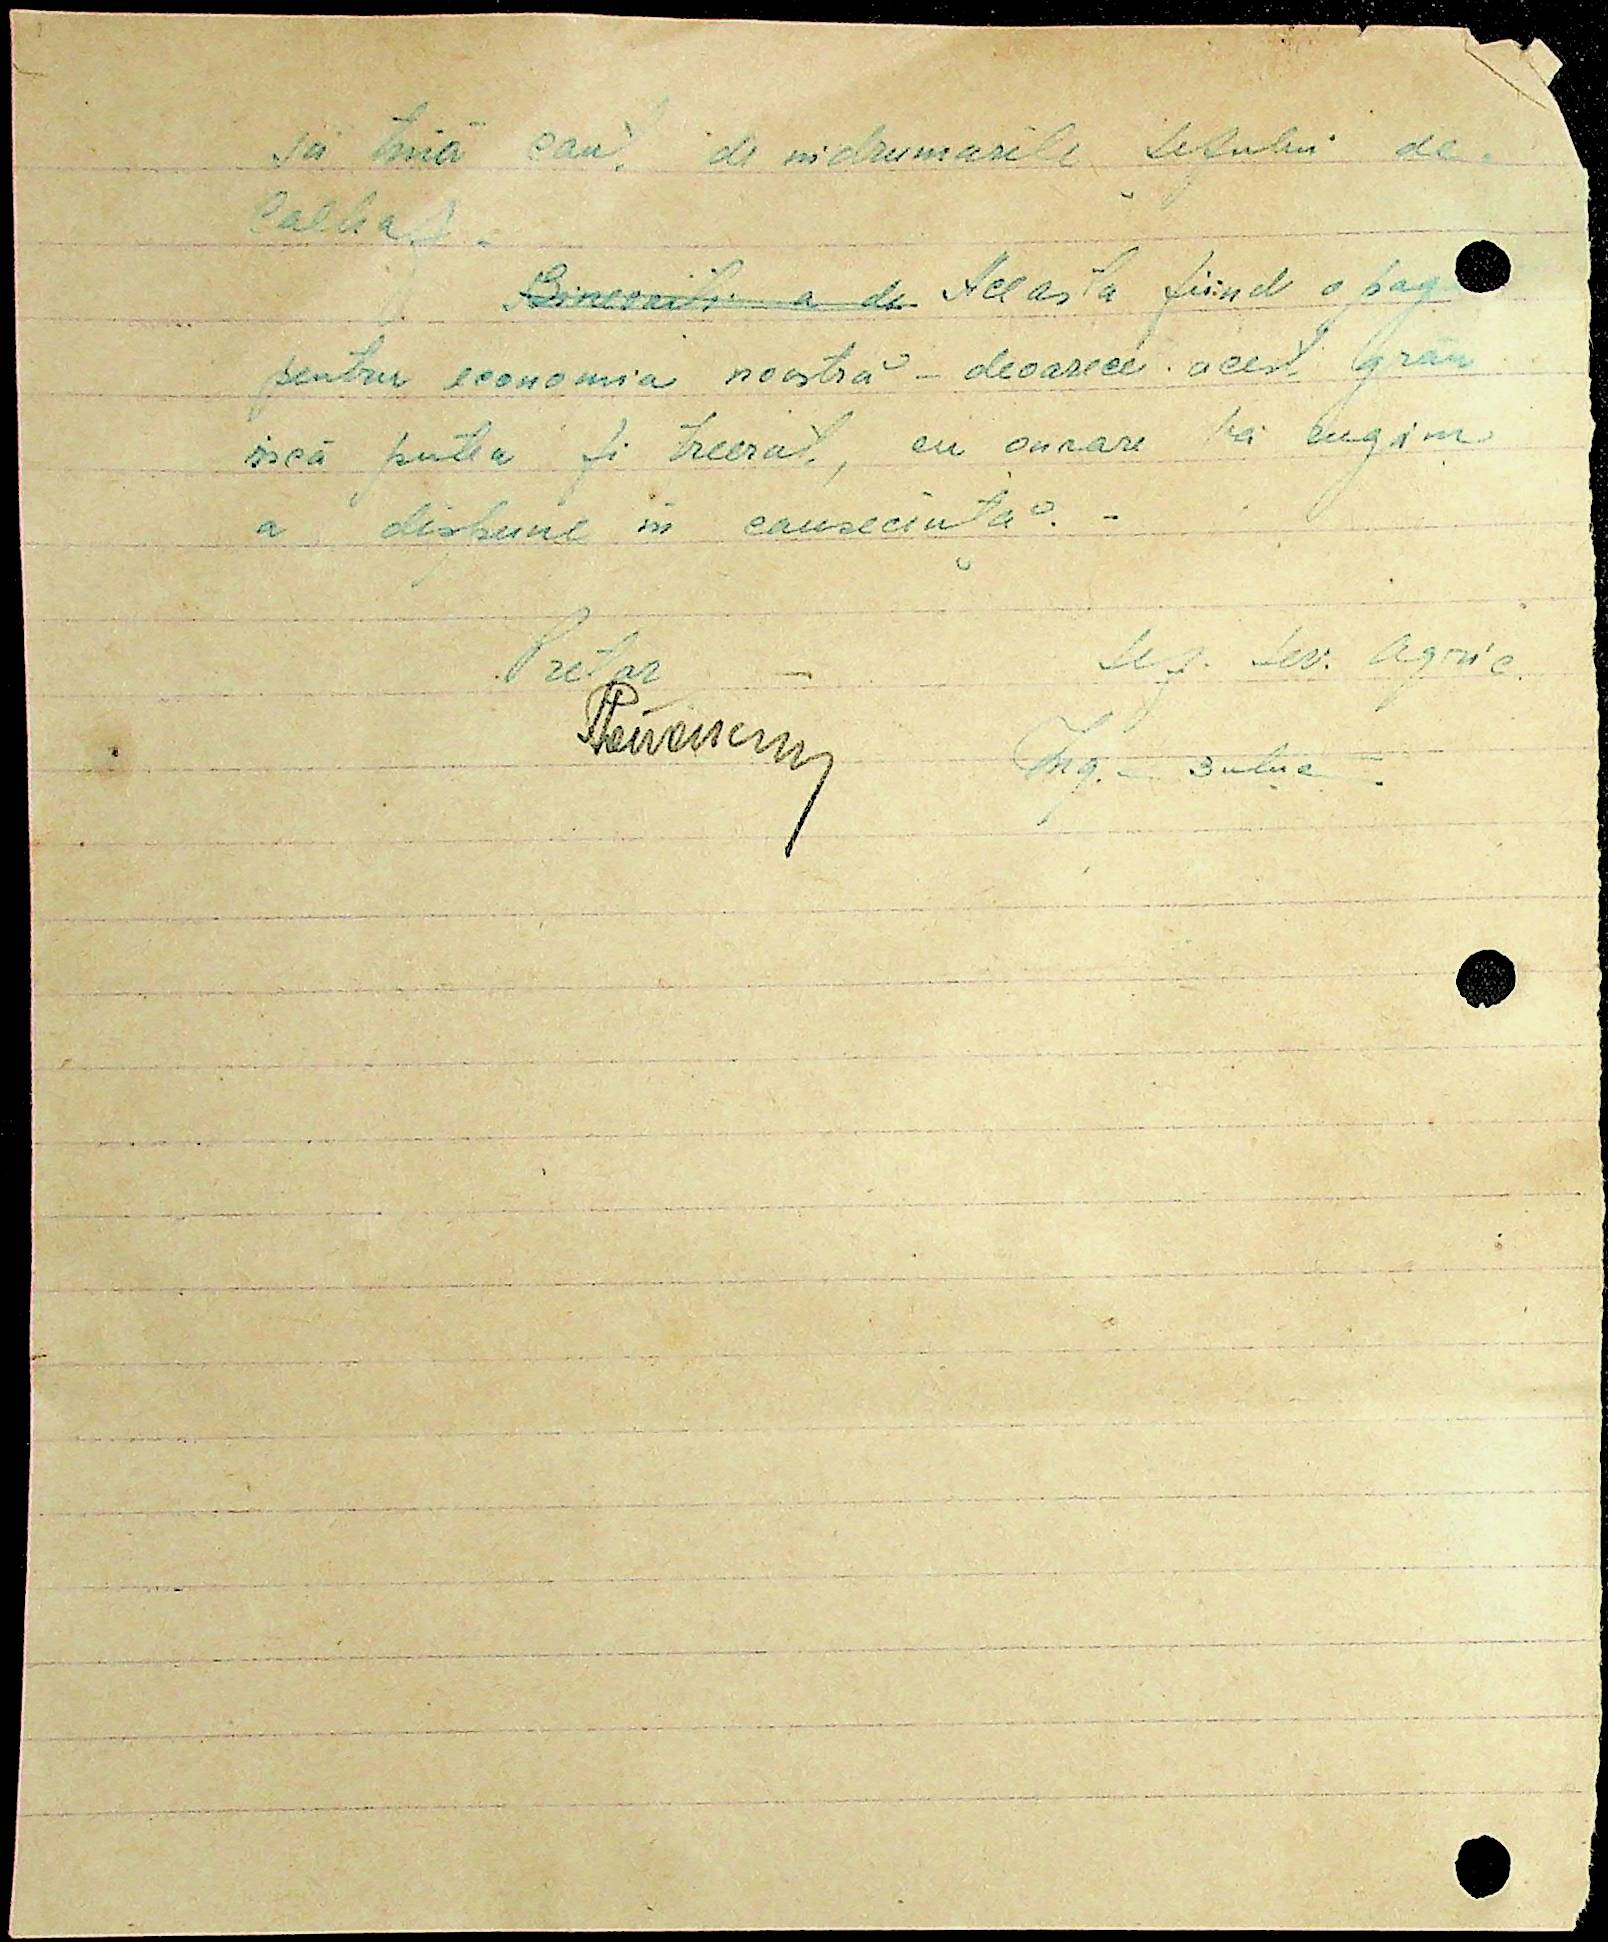 să țină cont de îndrumările șefului de

~~Binevoiți a da~~ Aceasta fiind o pag
pentru economia noastră - deoarece acest grâu
încă putea fi treerat, cu onoare vă rugăm
a dispune în consecință. -
Pretor - Șef. Serv. Agric.
Ing. -